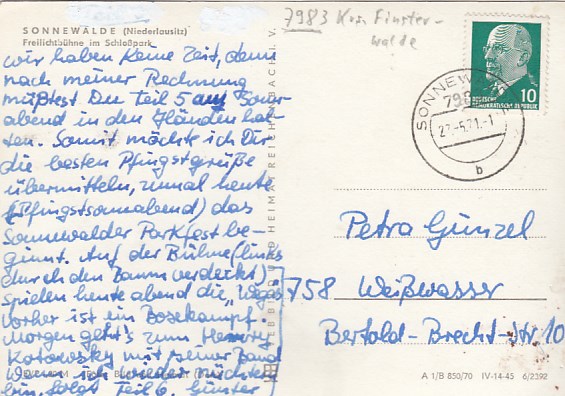 7983 Krs. Finster-
walde
SONNEWALDE (Niederlausitz)
Freilichtbühne im Schloßpark
wir haben keine Zeit, denn
nach meiner Rechnung
müßtest Du Teil 5 am Sonn-
abend in den Händen hal-
ten. Somit möchte ich Dir
die besten Pfingstgrüße
übermitteln, zumal heute
(Pfingstsonnabend) das
Sonnewalder Parkfest be-
ginnt. Auf der Bühne (links
durch den Baum verdeckt)
spielen heute abend die „Vegas“
Vorher ist ein Boxkampf.
Morgen geht's zum
Kotowsky mit seiner Band
Wenn ich wieder nüchtern
bin, folgt Teil 6. Günter
BILD UND HEIMAT REICHENBACH I. V.
10
DEUTSCHE
DEMOKRATISCHE REPUBLIK
SONNEW
b
Petra Günzel
758 Weißwasser
Bertold-Brecht-Str 10
A 1/B 850/70 IV-14-45 6/2392